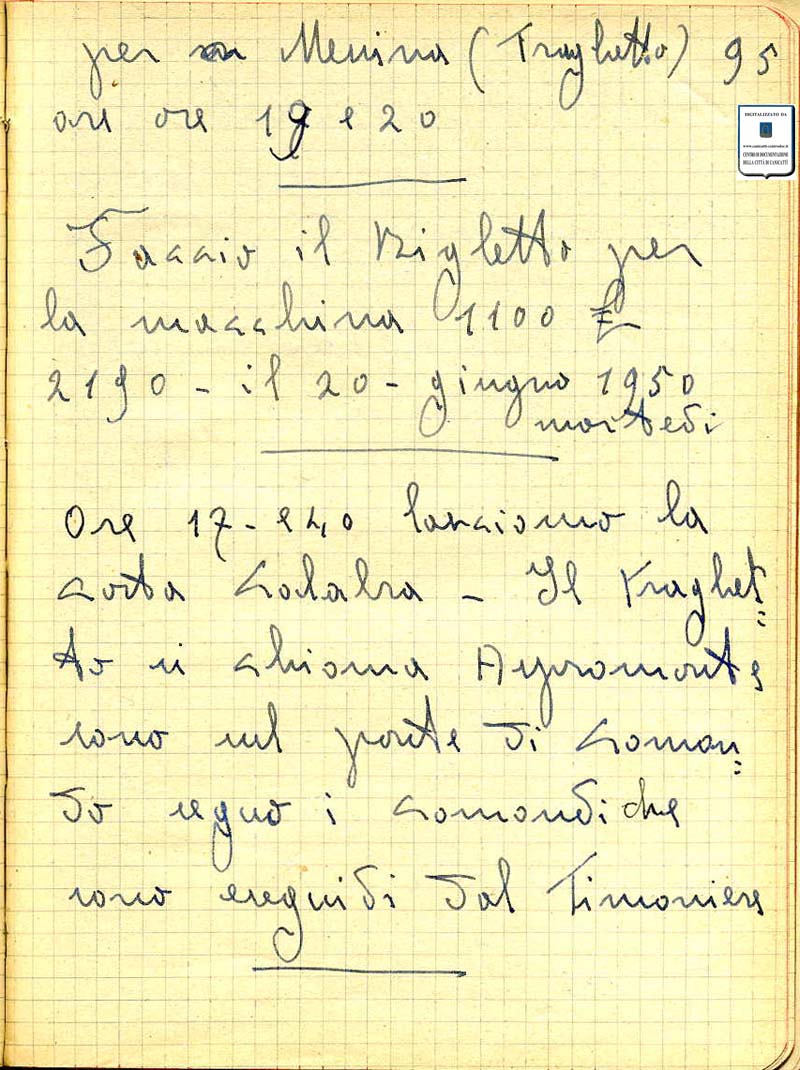 per Messina (Traghetto) 95
ore 19 e 20
DIGITALIZZATO DA
www.canicatti-centrodoc.it
CENTRO DI DOCUMENTAZIONE
DELLA CITTÀ DI CANICATTÌ
Faccio il Biglietto per
la macchina 1100 £
2190 - il 20 - giugno 1950
martedi
Ore 17 - e 40 lasciamo la
costa Calabra - Il Traghet=
to si chiama Aspromonte
sono sul ponte di Coman=
do seguo i comandi che
sono eseguidi dal Timoniere